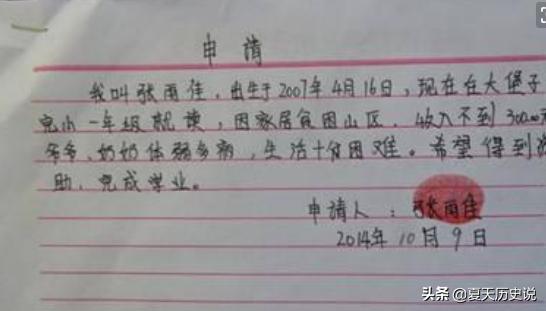 申请
我叫张雨佳，出生于2007年4月16日，现在在大堡子
完小一年级就读，因家居贫困山区，收入不到3000元
爷爷、奶奶体弱多病，生活十分困难。希望得到
助、完成学业。
申请人：张雨佳
2014年10月9日
头条 @夏天历史说